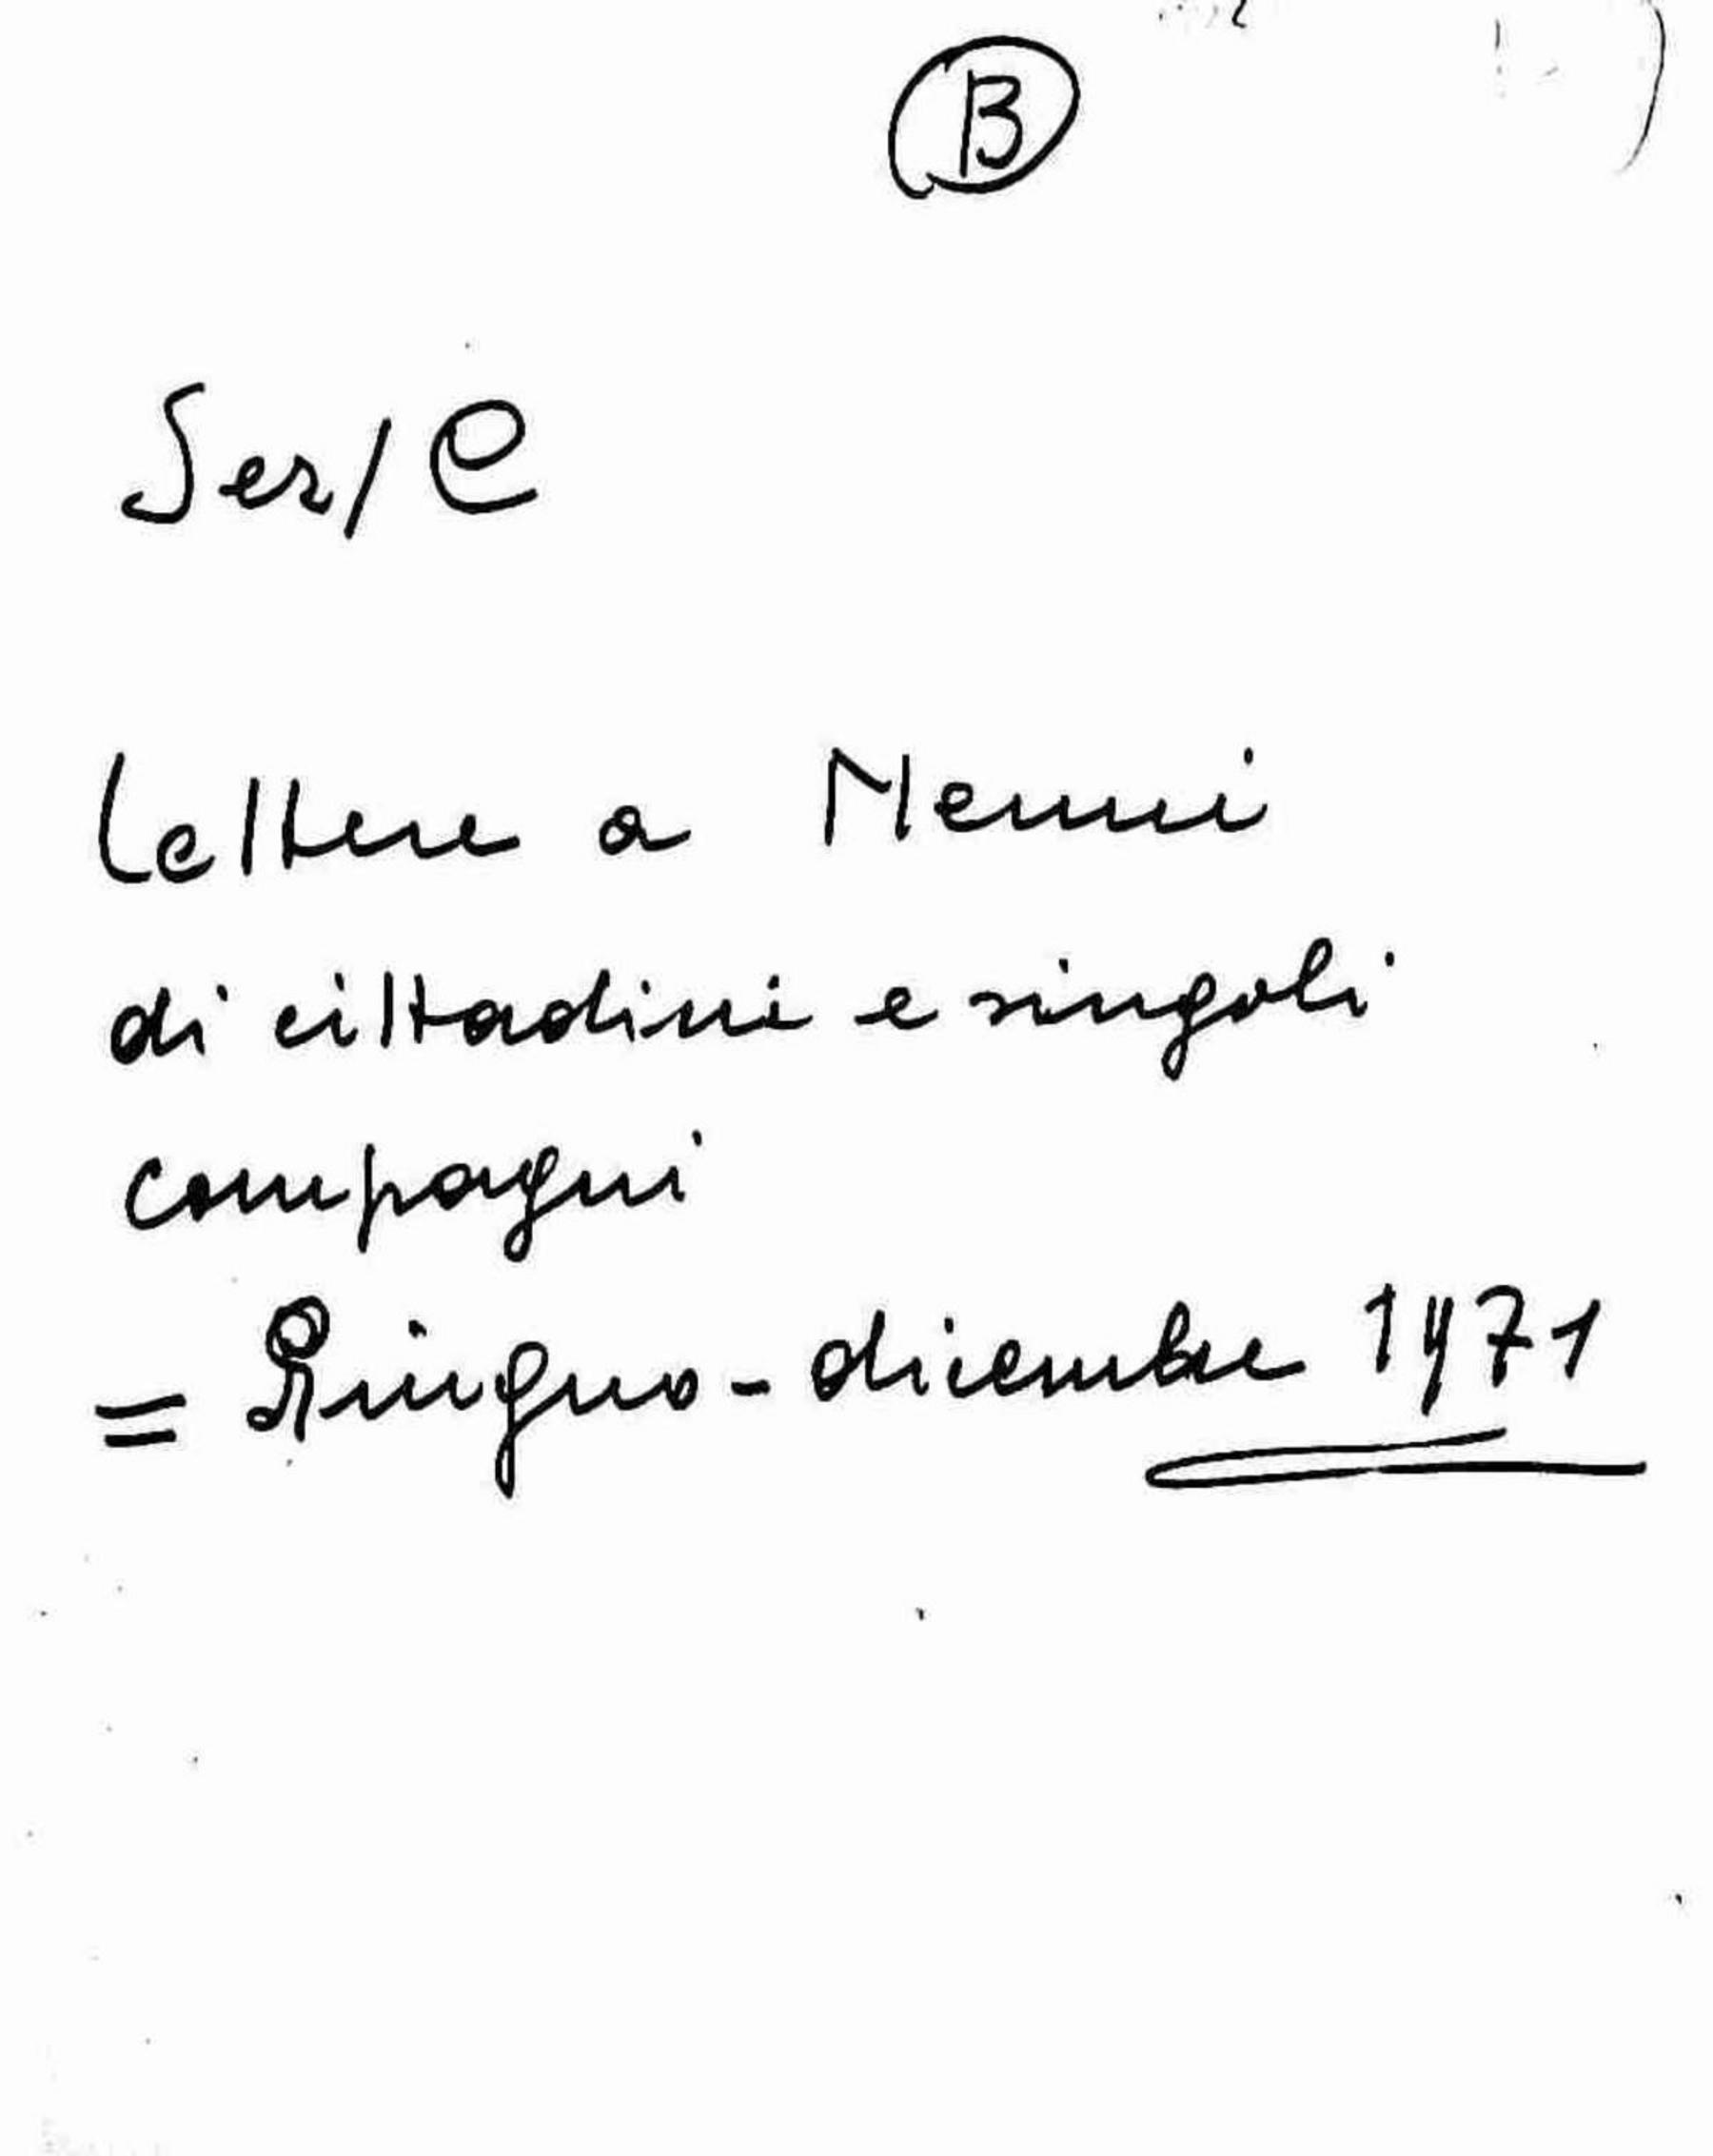 B
Ser/C
Lettere a Nenni
di cittadini e singoli
compagni
= Giugno - dicembre 1971